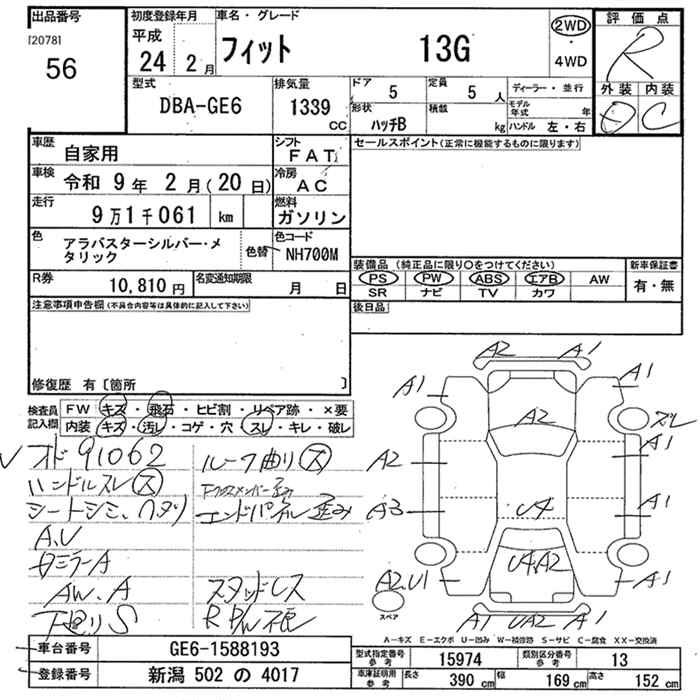 出品番号
[2078]
56
初度登録年月
平成
24 2月
車名・グレード
フィット 13G
2WD
・
4WD
評価点
R
外装 内装
D C
型式
DBA-GE6
排気量
1339 CC
ドア 5
形状 ハッチB
定員 5 人
積載 kg
ディーラー・並行
モデル年式 年
ハンドル 左・右
車歴 自家用
シフト FAT
車検 令和 9年 2月(20日)
冷房 AC
走行 9万1千061 km
燃料 ガソリン
色 アラバスターシルバー・メタリック
色替
色コード NH700M
R券 10,810円
名変通知期限 月 日
セールスポイント(正常に機能するものに限ります)
装備品 (純正品に限り○をつけてください)
新車保証書
PS PW ABS エアB AW
有・無
SR ナビ TV カワ
後日品
注意事項申告欄(不具合内容等は具体的に記入して下さい)
修復歴 有〔箇所 〕
検査員記入欄
FW キズ・飛石・ヒビ割・リペア跡・×要
内装 キズ・汚レ・コゲ・穴・スレ・キレ・破レ
オド91062
ルーフ曲り ス
ハンドルスレ ス
シートシミ、ヘタリ
エンドパネル歪み
A.U
ミラーA
AW.A
スタッドレス
下廻りS
A2 A1
A1 A1
A2 ズレ
A2 A1
A3 U4 A1
A2.U1 U4.A2 A1
スペア
A1 UA2 A1
A-キズ E-エクボ U-凹み W-補修跡 S-サビ C-腐食 XX-交換済
車台番号 GE6-1588193
登録番号 新潟 502 の 4017
型式指定番号 参考 15974
類別区分番号 参考 13
車庫証明用 参考
長さ 390 cm
幅 169 cm
高さ 152 cm